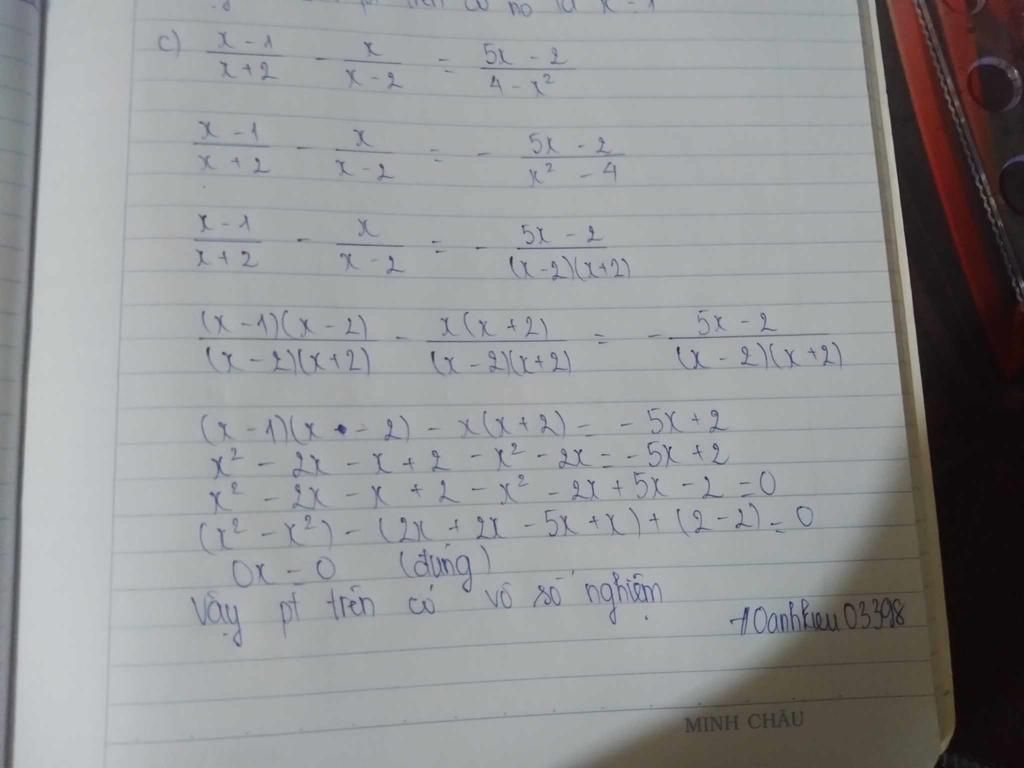 pt trên có no là x = 1
c) \frac{x-1}{x+2} - \frac{x}{x-2} = \frac{5x-2}{4-x²}
\frac{x-1}{x+2} - \frac{x}{x-2} = - \frac{5x-2}{x²-4}
\frac{x-1}{x+2} - \frac{x}{x-2} = - \frac{5x-2}{(x-2)(x+2)}
\frac{(x-1)(x-2)}{(x-2)(x+2)} - \frac{x(x+2)}{(x-2)(x+2)} = - \frac{5x-2}{(x-2)(x+2)}
(x-1)(x-2) - x(x+2) = -5x+2
x² - 2x - x + 2 - x² - 2x = -5x+2
x² - 2x - x + 2 - x² - 2x + 5x - 2 = 0
(x² - x²) - (2x + 2x - 5x + x) + (2 - 2) = 0
0x = 0 (đúng)
Vậy pt trên có vô số nghiệm.
MINH CHÂU